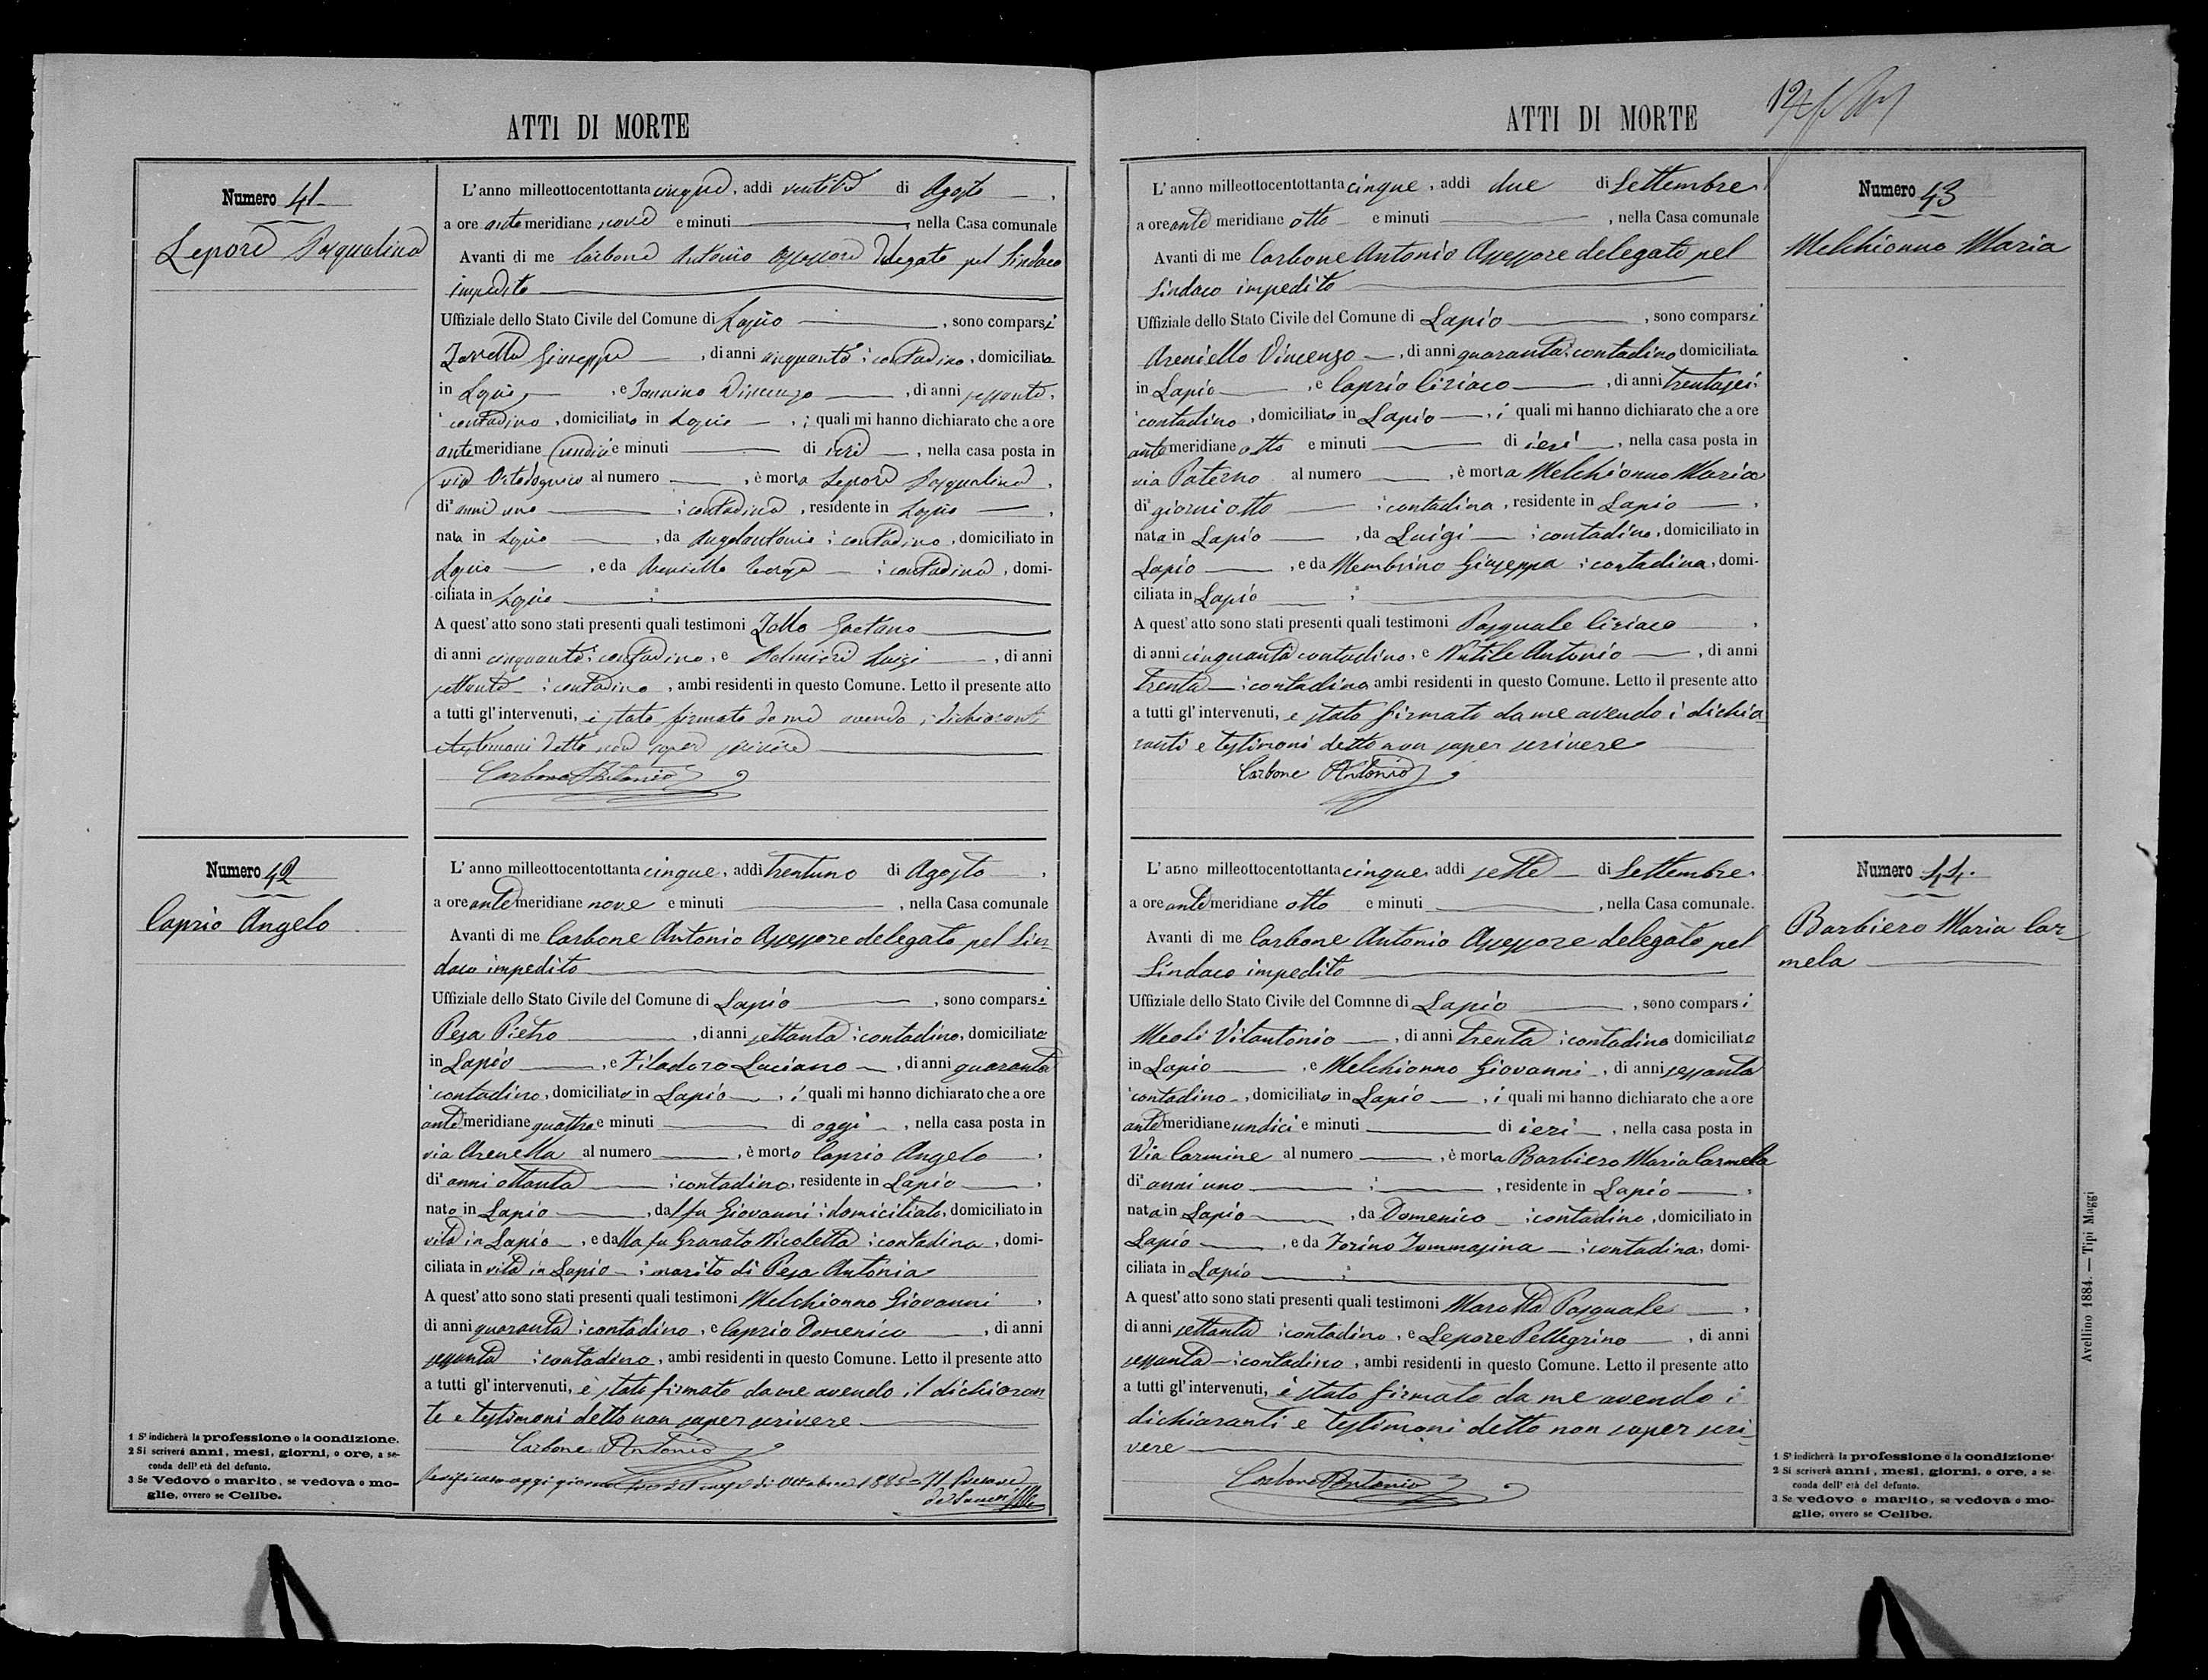 ATTI DI MORTE
Numero 41
Lepore Pasqualina
L'anno milleottocentottanta cinque, addi di Agosto
a ore antemeridiane nove e minuti , nella Casa comunale
Avanti di me Carbone Antonio Assessore delegato pel Sindaco
impedito
Uffiziale dello Stato Civile del Comune di Lapio , sono comparsi
Giuseppe , di anni cinquanta contadino, domiciliato
in Lapio , e Vincenzo , di anni sessanta,
contadino, domiciliato in Lapio , i quali mi hanno dichiarato che a ore
antemeridiane undici e minuti di ieri , nella casa posta in
via al numero , è morta Lepore Pasqualina,
di anni uno contadina, residente in Lapio ,
nata in Lapio , da Angelantonio contadino, domiciliato in
Lapio , e da Areniello contadina, domi-
ciliata in Lapio
A quest'atto sono stati presenti quali testimoni Zollo Gaetano
di anni cinquanta contadino, e Palmieri Luigi , di anni
settanta contadino, ambi residenti in questo Comune. Letto il presente atto
a tutti gl'intervenuti, è stato firmato da me avendo i dichiaranti
e testimoni detto non saper scrivere
Carbone Antonio
Numero 42
Caprio Angelo
L'anno milleottocentottanta cinque, addi trentuno di Agosto ,
a ore antemeridiane nove e minuti , nella Casa comunale
Avanti di me Carbone Antonio Assessore delegato pel Sin-
daco impedito
Uffiziale dello Stato Civile del Comune di Lapio , sono comparsi
Pesa Pietro , di anni settanta contadino, domiciliato
in Lapio , e Filadoro Luciano , di anni quaranta
contadino, domiciliato in Lapio , i quali mi hanno dichiarato che a ore
antemeridiane quattro e minuti di oggi , nella casa posta in
via Arenella al numero , è morto Caprio Angelo ,
di anni ottanta contadino, residente in Lapio ,
nato in Lapio , dal fu Giovanni domiciliato, domiciliato in
vita in Lapio , e dalla fu Granato Nicoletta contadina, domi-
ciliata in vita in Lapio marito di Pesa Antonia
A quest'atto sono stati presenti quali testimoni Melchionno Giovanni ,
di anni quaranta contadino, e Caprio Domenico , di anni
sessanta contadino, ambi residenti in questo Comune. Letto il presente atto
a tutti gl'intervenuti, è stato firmato da me avendo il dichiaran-
te e testimoni detto non saper scrivere
Carbone Antonio
oggi giorno di Ottobre 1885 Il
1 S'indicherà la professione o la condizione.
2 Si scriverà anni, mesi, giorni, o ore, a se-
conda dell'età del defunto.
3 Se Vedovo o marito, se vedova o mo-
glie, ovvero se Celibe.
ATTI DI MORTE
Numero 43
Melchionno Maria
L'anno milleottocentottanta cinque, addi due di Settembre
a ore antemeridiane otto e minuti , nella Casa comunale
Avanti di me Carbone Antonio Assessore delegato pel
Sindaco impedito
Uffiziale dello Stato Civile del Comune di Lapio , sono comparsi
Areniello Vincenzo , di anni quaranta contadino domiciliato
in Lapio , e Caprio Ciriaco , di anni trentasei
contadino, domiciliato in Lapio , i quali mi hanno dichiarato che a ore
antemeridiane otto e minuti di ieri , nella casa posta in
via Paterno al numero , è morta Melchionno Maria
di giorni otto contadina, residente in Lapio ,
nata in Lapio , da Luigi contadino, domiciliato in
Lapio , e da Membrino Giuseppa contadina, domi-
ciliata in Lapio
A quest'atto sono stati presenti quali testimoni Pasquale Ciriaco ,
di anni cinquanta contadino, e Nutile Antonio , di anni
trenta contadino ambi residenti in questo Comune. Letto il presente atto
a tutti gl'intervenuti, è stato firmato da me avendo i dichia-
ranti e testimoni detto non saper scrivere
Carbone Antonio
Numero 44.
Barbiero Maria Car-
mela
L'anno milleottocentottanta cinque, addi sette di Settembre
a ore antemeridiane otto e minuti , nella Casa comunale.
Avanti di me Carbone Antonio Assessore delegato pel
Sindaco impedito
Uffiziale dello Stato Civile del Comnne di Lapio , sono comparsi
Meoli Vitantonio , di anni trenta contadino domiciliato
in Lapio , e Melchionno Giovanni , di anni sessanta
contadino , domiciliato in Lapio , i quali mi hanno dichiarato che a ore
antemeridiane undici e minuti di ieri , nella casa posta in
Via Carmine al numero , è morta Barbiero Maria Carmela
di anni uno , residente in Lapio ,
nata in Lapio , da Domenico contadino, domiciliato in
Lapio , e da Forino Tommasina contadina, domi-
ciliata in Lapio
A quest'atto sono stati presenti quali testimoni Marotta Pasquale ,
di anni settanta contadino, e Lepore Pellegrino , di anni
sessanta contadino, ambi residenti in questo Comune. Letto il presente atto
a tutti gl'intervenuti, è stato firmato da me avendo i
dichiaranti e testimoni detto non saper scri-
vere
Carbone Antonio
1 S'indicherà la professione o la condizione
2 Si scriverà anni, mesi, giorni, o ore, a se-
conda dell'età del defunto.
3 Se vedovo o marito, se vedova o mo-
glie, ovvero se Celibe.
Avellino 1884. — Tipi Maggi